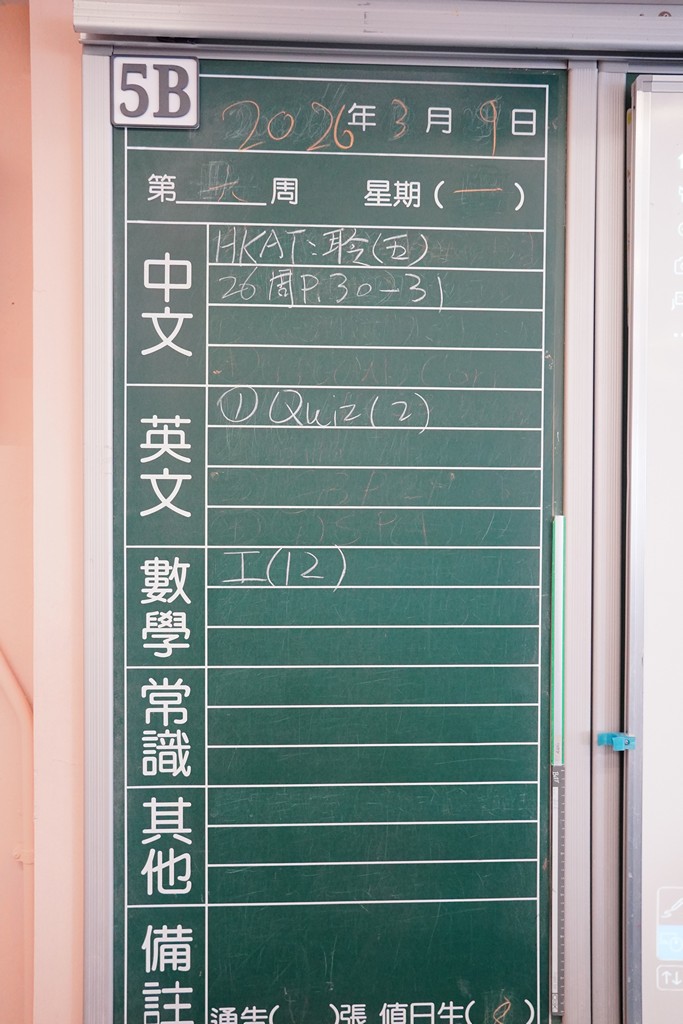 5B
2026年3月9日
第 周 星期(一)
中文
HKAT:聆(五)
26周P.30-31
英文
① Quiz(2)
數學
工(12)
常識
其他
備註
通告( )張 值日生(8)